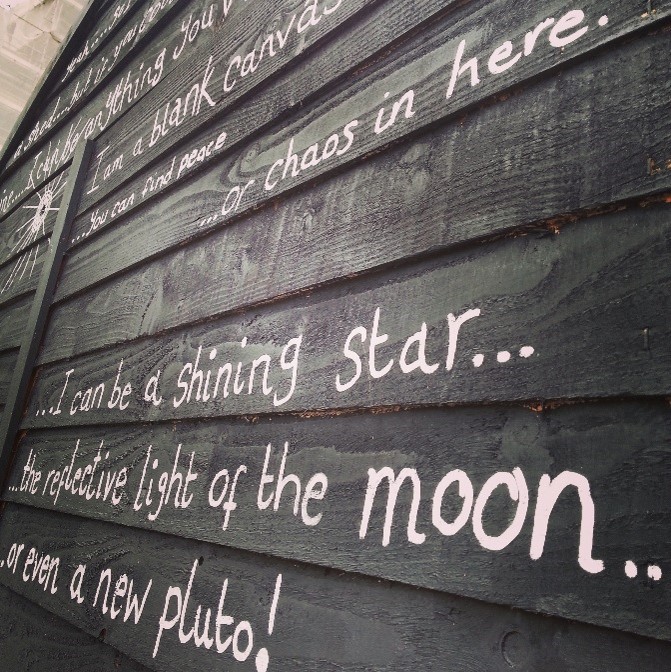 a shed...but if you
I can be anything you
I am a blank canvas
...you can find peace
...or chaos in here.
...I can be a shining star...
...the reflective light of the moon..
.or even a new pluto!